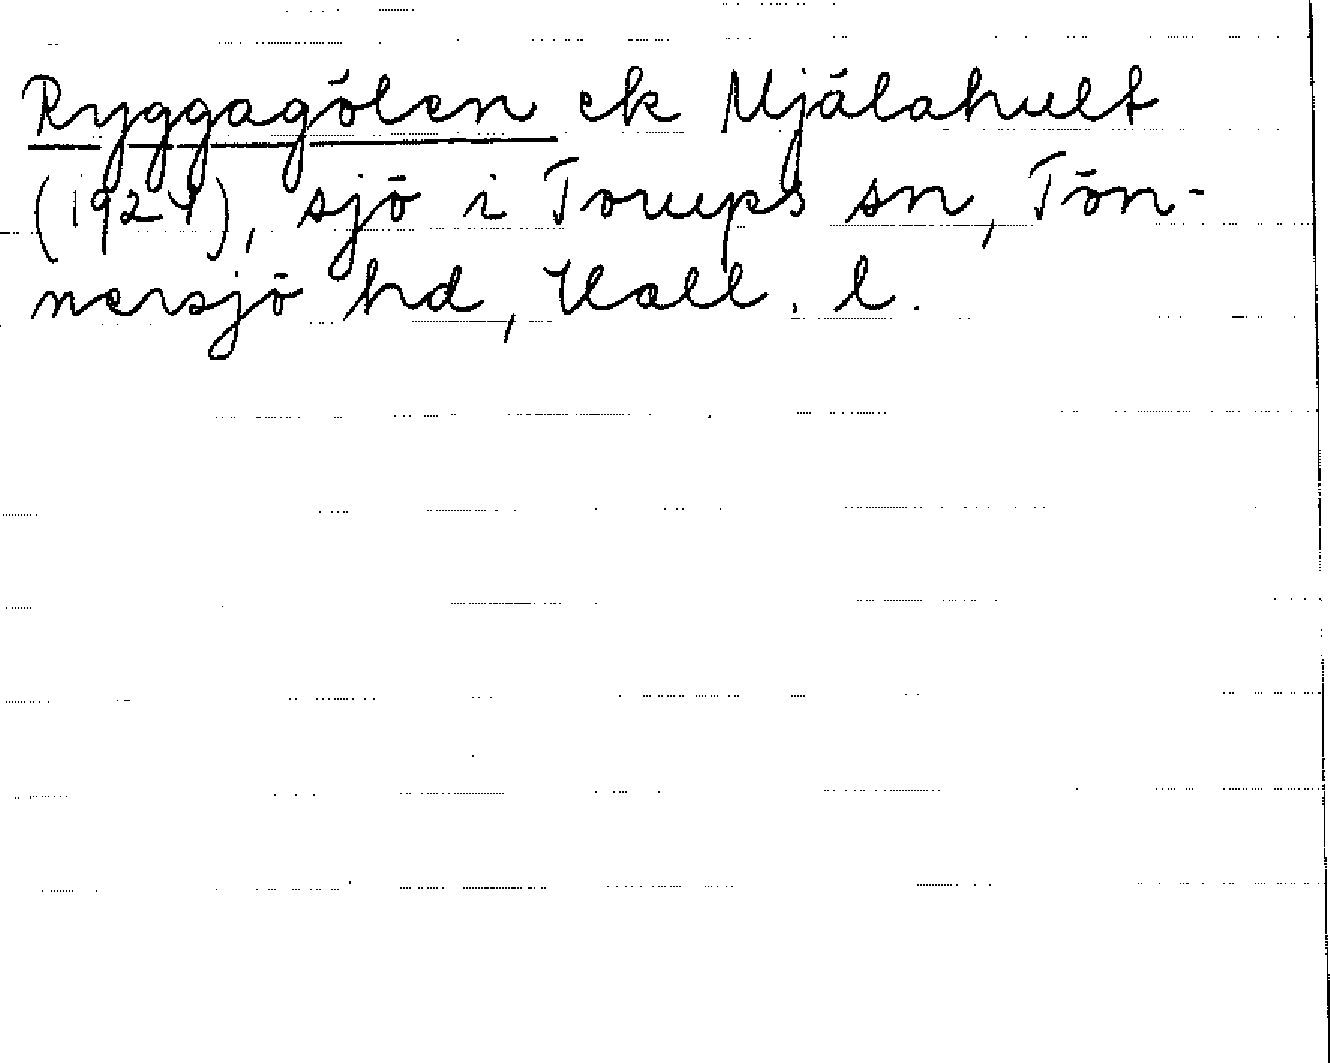 Ryggagölen ek Mjälahult
(1924), sjö i Torups sn, Tön-
nersjö hd, Hall. l.